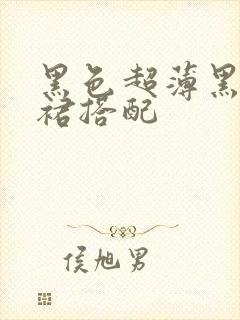 黑色超薄黑
裙搭配
侯旭男